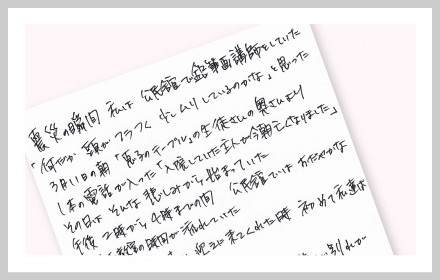 震災の瞬間 私は 公民館で鉛筆画講師をしていた
「何だか 頭がフラつく 少しムリしているのかな」と思った
3月11日の朝 「思うのテーブル」の生徒さんの奥さんより
1本の電話が入った「入院していた主人が今朝亡くなりました」
その日は そんな悲しみから始まっていた
午後 2時から4時までの間 公民館では おだやかな
教室の時間が流れていた
に来てくれた時 初めて私達は
別れが